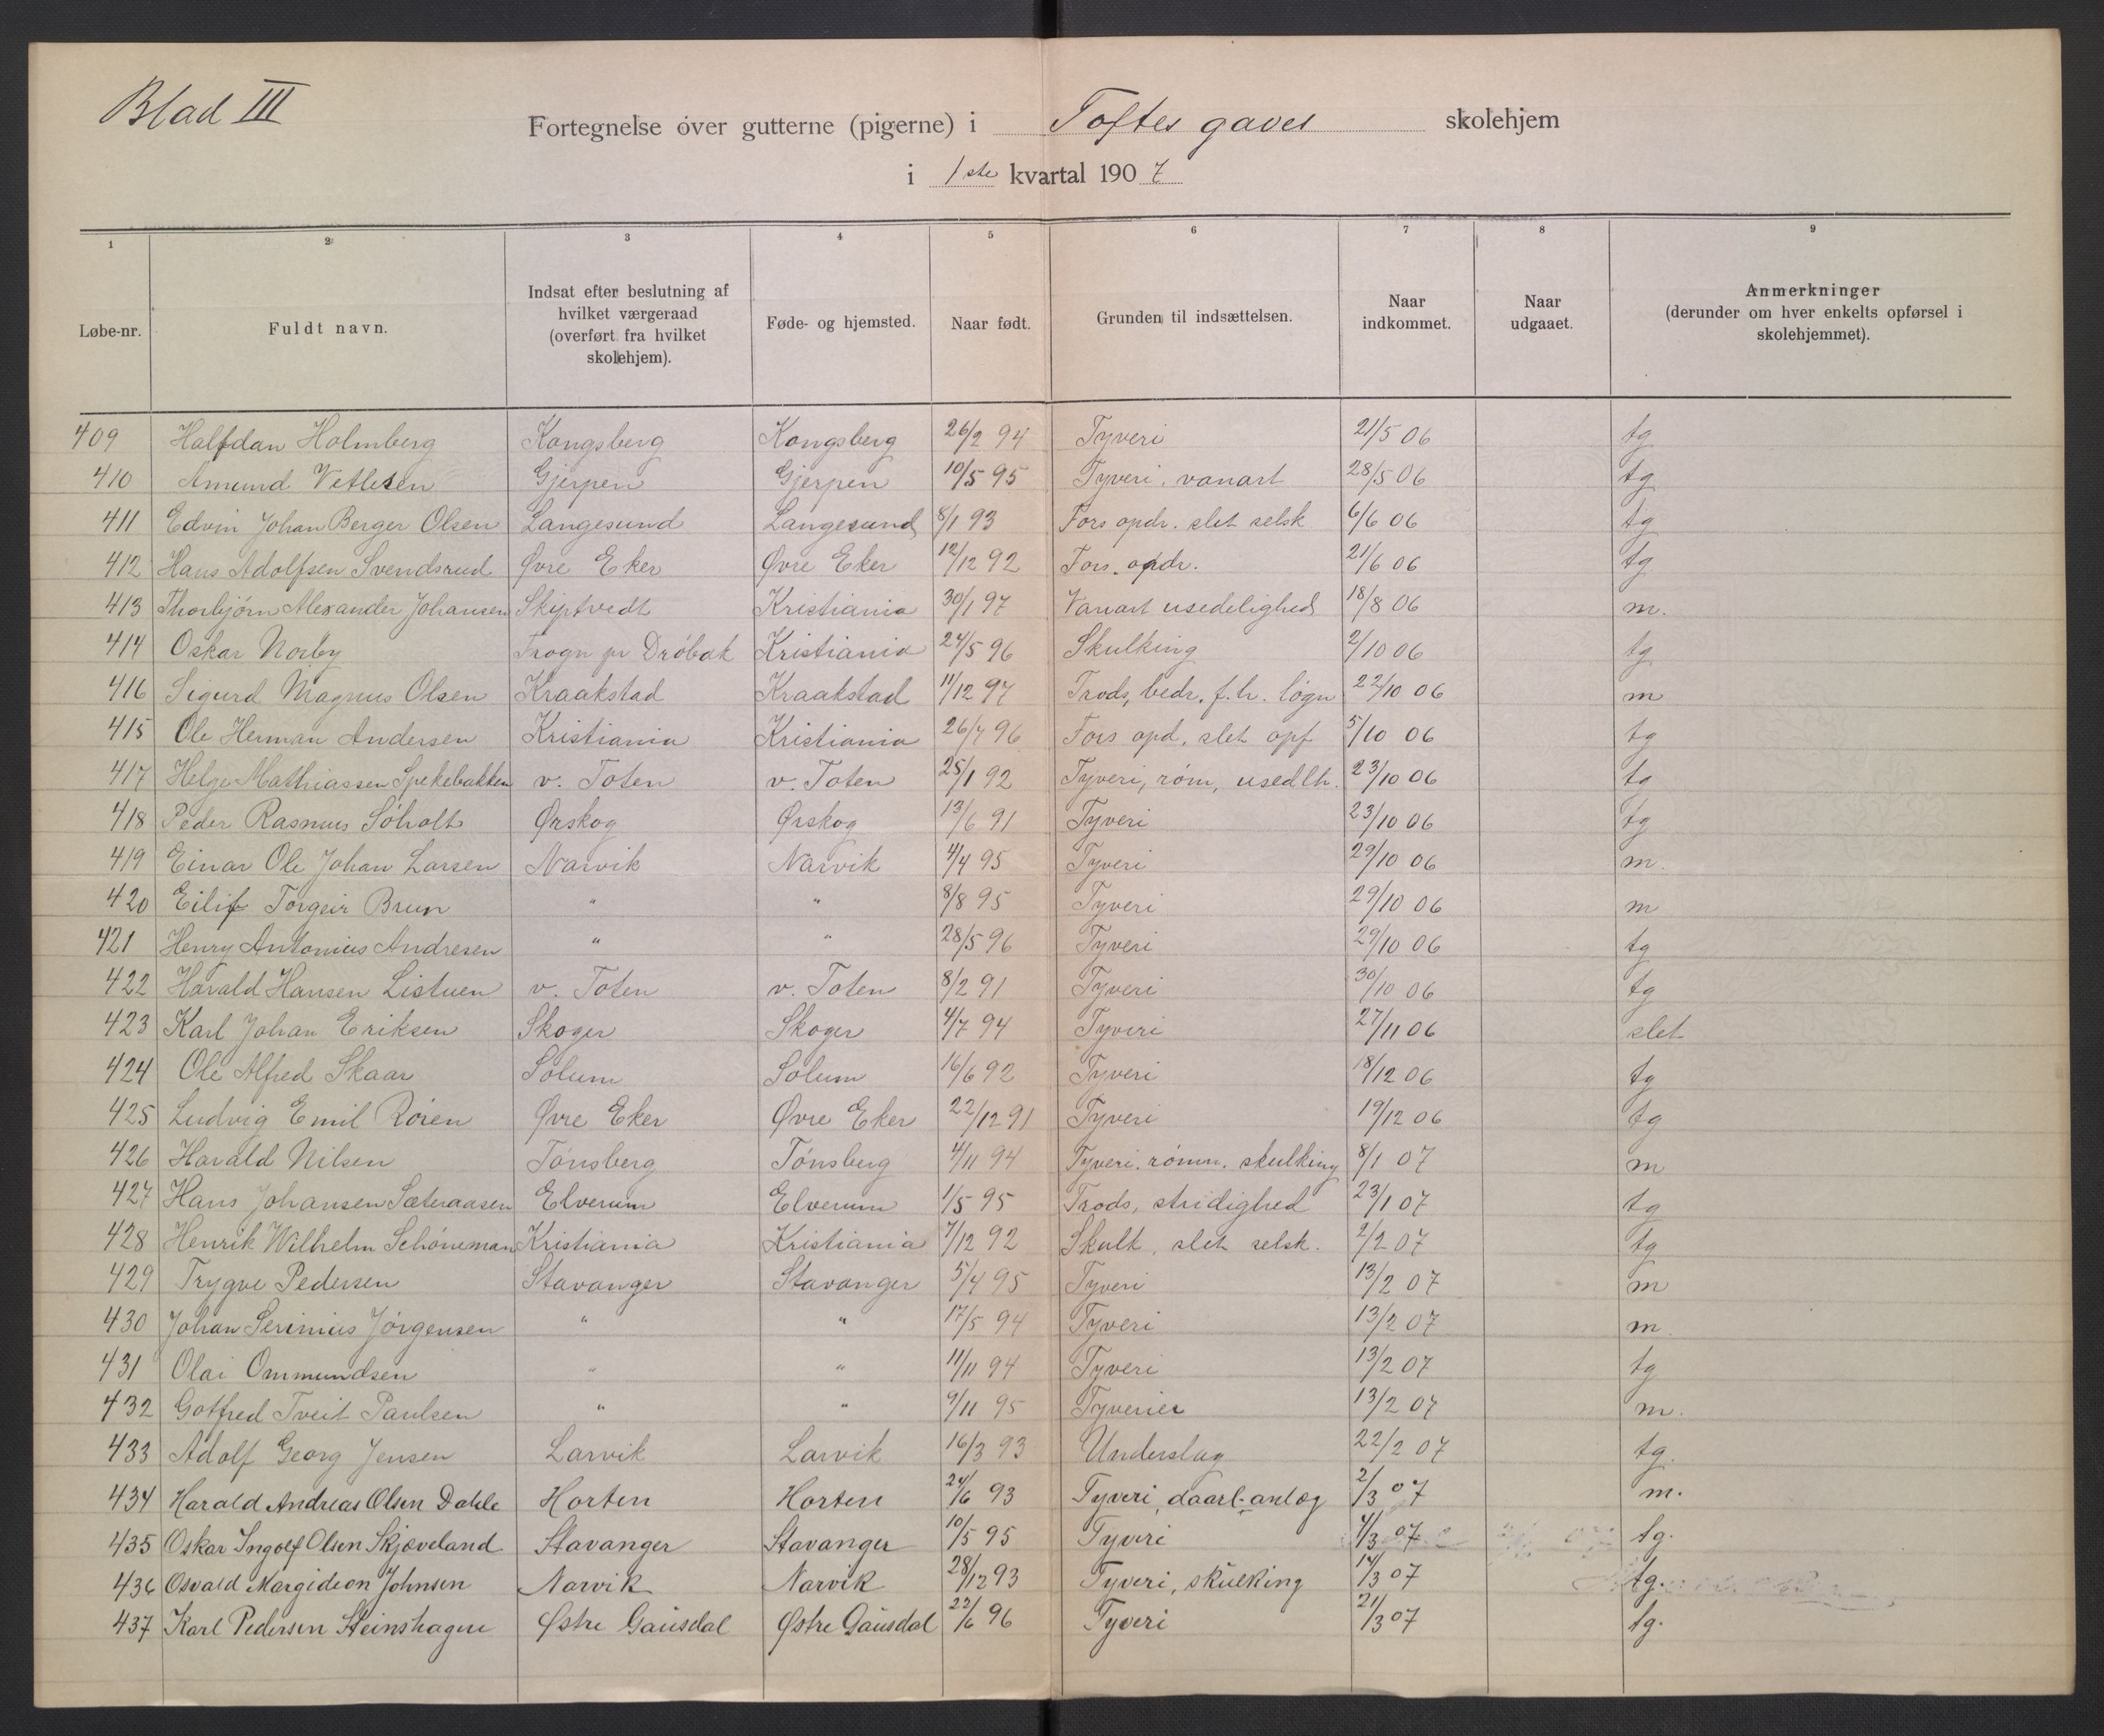 Blad III
Fortegnelse over gutterne (pigerne) i Toftes gaves skolehjem
i 1ste kvartal 1907
1 2 3 4 5 6 7 8 9
Løbe-nr. Fuldt navn. Indsat efter beslutning af hvilket værgeraad (overført fra hvilket skolehjem). Føde- og hjemsted. Naar født. Grunden til indsættelsen. Naar indkommet. Naar udgaaet. Anmerkninger (derunder om hver enkelts opførsel i skolehjemmet).
409 Halfdan Holmberg Kongsberg Kongsberg 26/2 94 Tyveri 21/5 06 tg
410 Amund Vetlesen Gjerpen Gjerpen 10/5 95 Tyveri, vanart 28/5 06 tg
411 Edvin Johan Berger Olsen Langesund Langesund 8/1 93 Fors opdr. slet selsk 6/6 06 tg
412 Hans Adolfsen Svendsrud Øvre Eker Øvre Eker 12/12 92 Fors. opdr. 21/6 06 tg
413 Thorbjørn Alexander Johansen Skiptvedt Kristiania 30/1 97 Vanart usedelighed 18/8 06 m.
414 Oskar Norby Frogn pr Drøbak Kristiania 24/5 96 Skulking 2/10 06 tg
416 Sigurd Magnus Olsen Kraakstad Kraakstad 11/12 97 Trods, bedr. f.h. løgn 22/10 06 m
415 Ole Herman Andersen Kristiania Kristiania 26/7 96 Fors opd, slet opf 5/10 06 tg
417 Helge Mathiassen Spekebakken v. Toten v. Toten 25/1 92 Tyveri, røm, usedlh. 23/10 06 tg
418 Peder Rasmus Søholt Ørskog Ørskog 13/6 91 Tyveri 23/10 06 tg
419 Einar Ole Johan Larsen Narvik Narvik 4/4 95 Tyveri 29/10 06 m.
420 Eilif Torgeir Brun " " 8/8 95 Tyveri 29/10 06 m
421 Henry Antonius Andresen " " 28/5 96 Tyveri 29/10 06 tg
422 Harald Hansen Listuen v. Toten v. Toten 8/2 91 Tyveri 30/10 06 tg
423 Karl Johan Eriksen Skoger Skoger 4/7 94 Tyveri 27/11 06 slet
424 Ole Alfred Skaar Solum Solum 16/6 92 Tyveri 18/12 06 tg
425 Ludvig Emil Røren Øvre Eker Øvre Eker 22/12 91 Tyveri 19/12 06 tg
426 Harald Nilsen Tønsberg Tønsberg 4/11 94 Tyveri. rømn. skulking 8/1 07 m
427 Hans Johansen Sæteraasen Elverum Elverum 1/5 95 Trods, stridighed 23/1 07 tg
428 Henrik Wilhelm Schøneman Kristiania Kristiania 7/12 92 Skulk, slet selsk. 2/2 07 tg
429 Trygve Pedersen Stavanger Stavanger 5/4 95 Tyveri 13/2 07 m
430 Johan Serinius Jørgensen " " 17/5 94 Tyveri 13/2 07 m.
431 Olai Ommundsen " " 11/11 94 Tyveri 13/2 07 tg
432 Gotfred Tveit Paulsen " " 9/11 95 Tyverier 13/2 07 m.
433 Adolf Georg Jensen Larvik Larvik 16/3 93 Underslag 22/2 07 tg.
434 Harald Andreas Olsen Dahle Horten Horten 24/6 93 Tyveri, daarl. anlæg 2/3 07 m.
435 Oskar Ingolf Olsen Skjæveland Stavanger Stavanger 10/5 95 Tyveri 4/3 07 tg.
436 Osvald Margideon Johnsen Narvik Narvik 28/12 93 Tyveri, skulking 14/3 07 tg.
437 Karl Pedersen Steinshagen Østre Gausdal Østre Gausdal 22/6 96 Tyveri 21/3 07 tg.